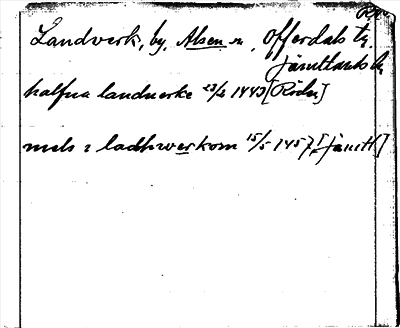 Landverk, by, Alsen sn, Offerdals tg.
Jämtlands l.
halfua landuerke 23/2 1443 [Rödn]
mels i ladhwerkom 15/5 1457 [Jämtl.]